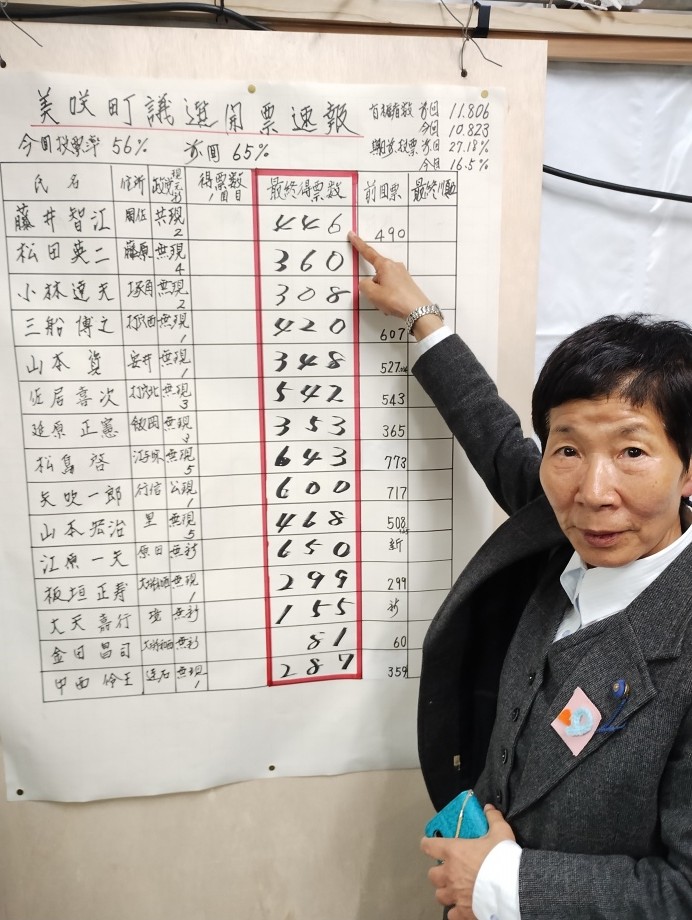 美咲町議選開票速報
有権者数 前回 11.806
今回 10.823
今回投票率 56% 前回 65%
期日前投票 前回 27.18%
今回 16.5%
氏名 住所 政党 現元新 得票数 1回目 最終得票数 前回票 最終順位
藤井智江 共現 2 446 490
松田英二 藤原 無現 4 360
小林達夫 塚角 無現 2 308
三船博之 無現 1 420 607
山本資 安井 無現 1 348 527
佐居喜次 無現 3 542 543
延原正憲 飯岡 無現 353 365
松島啓 無現 5 643 773
矢吹一郎 行信 公現 1 600 717
山本宏治 里 無現 5 468 508
江原一夫 原田 無新 650 新
板垣正寿 無現 1 299 299
大天嘉行 境 無新 155 新
金田昌司 無新 81 60
中西伶王 連石 無現 1 287 359